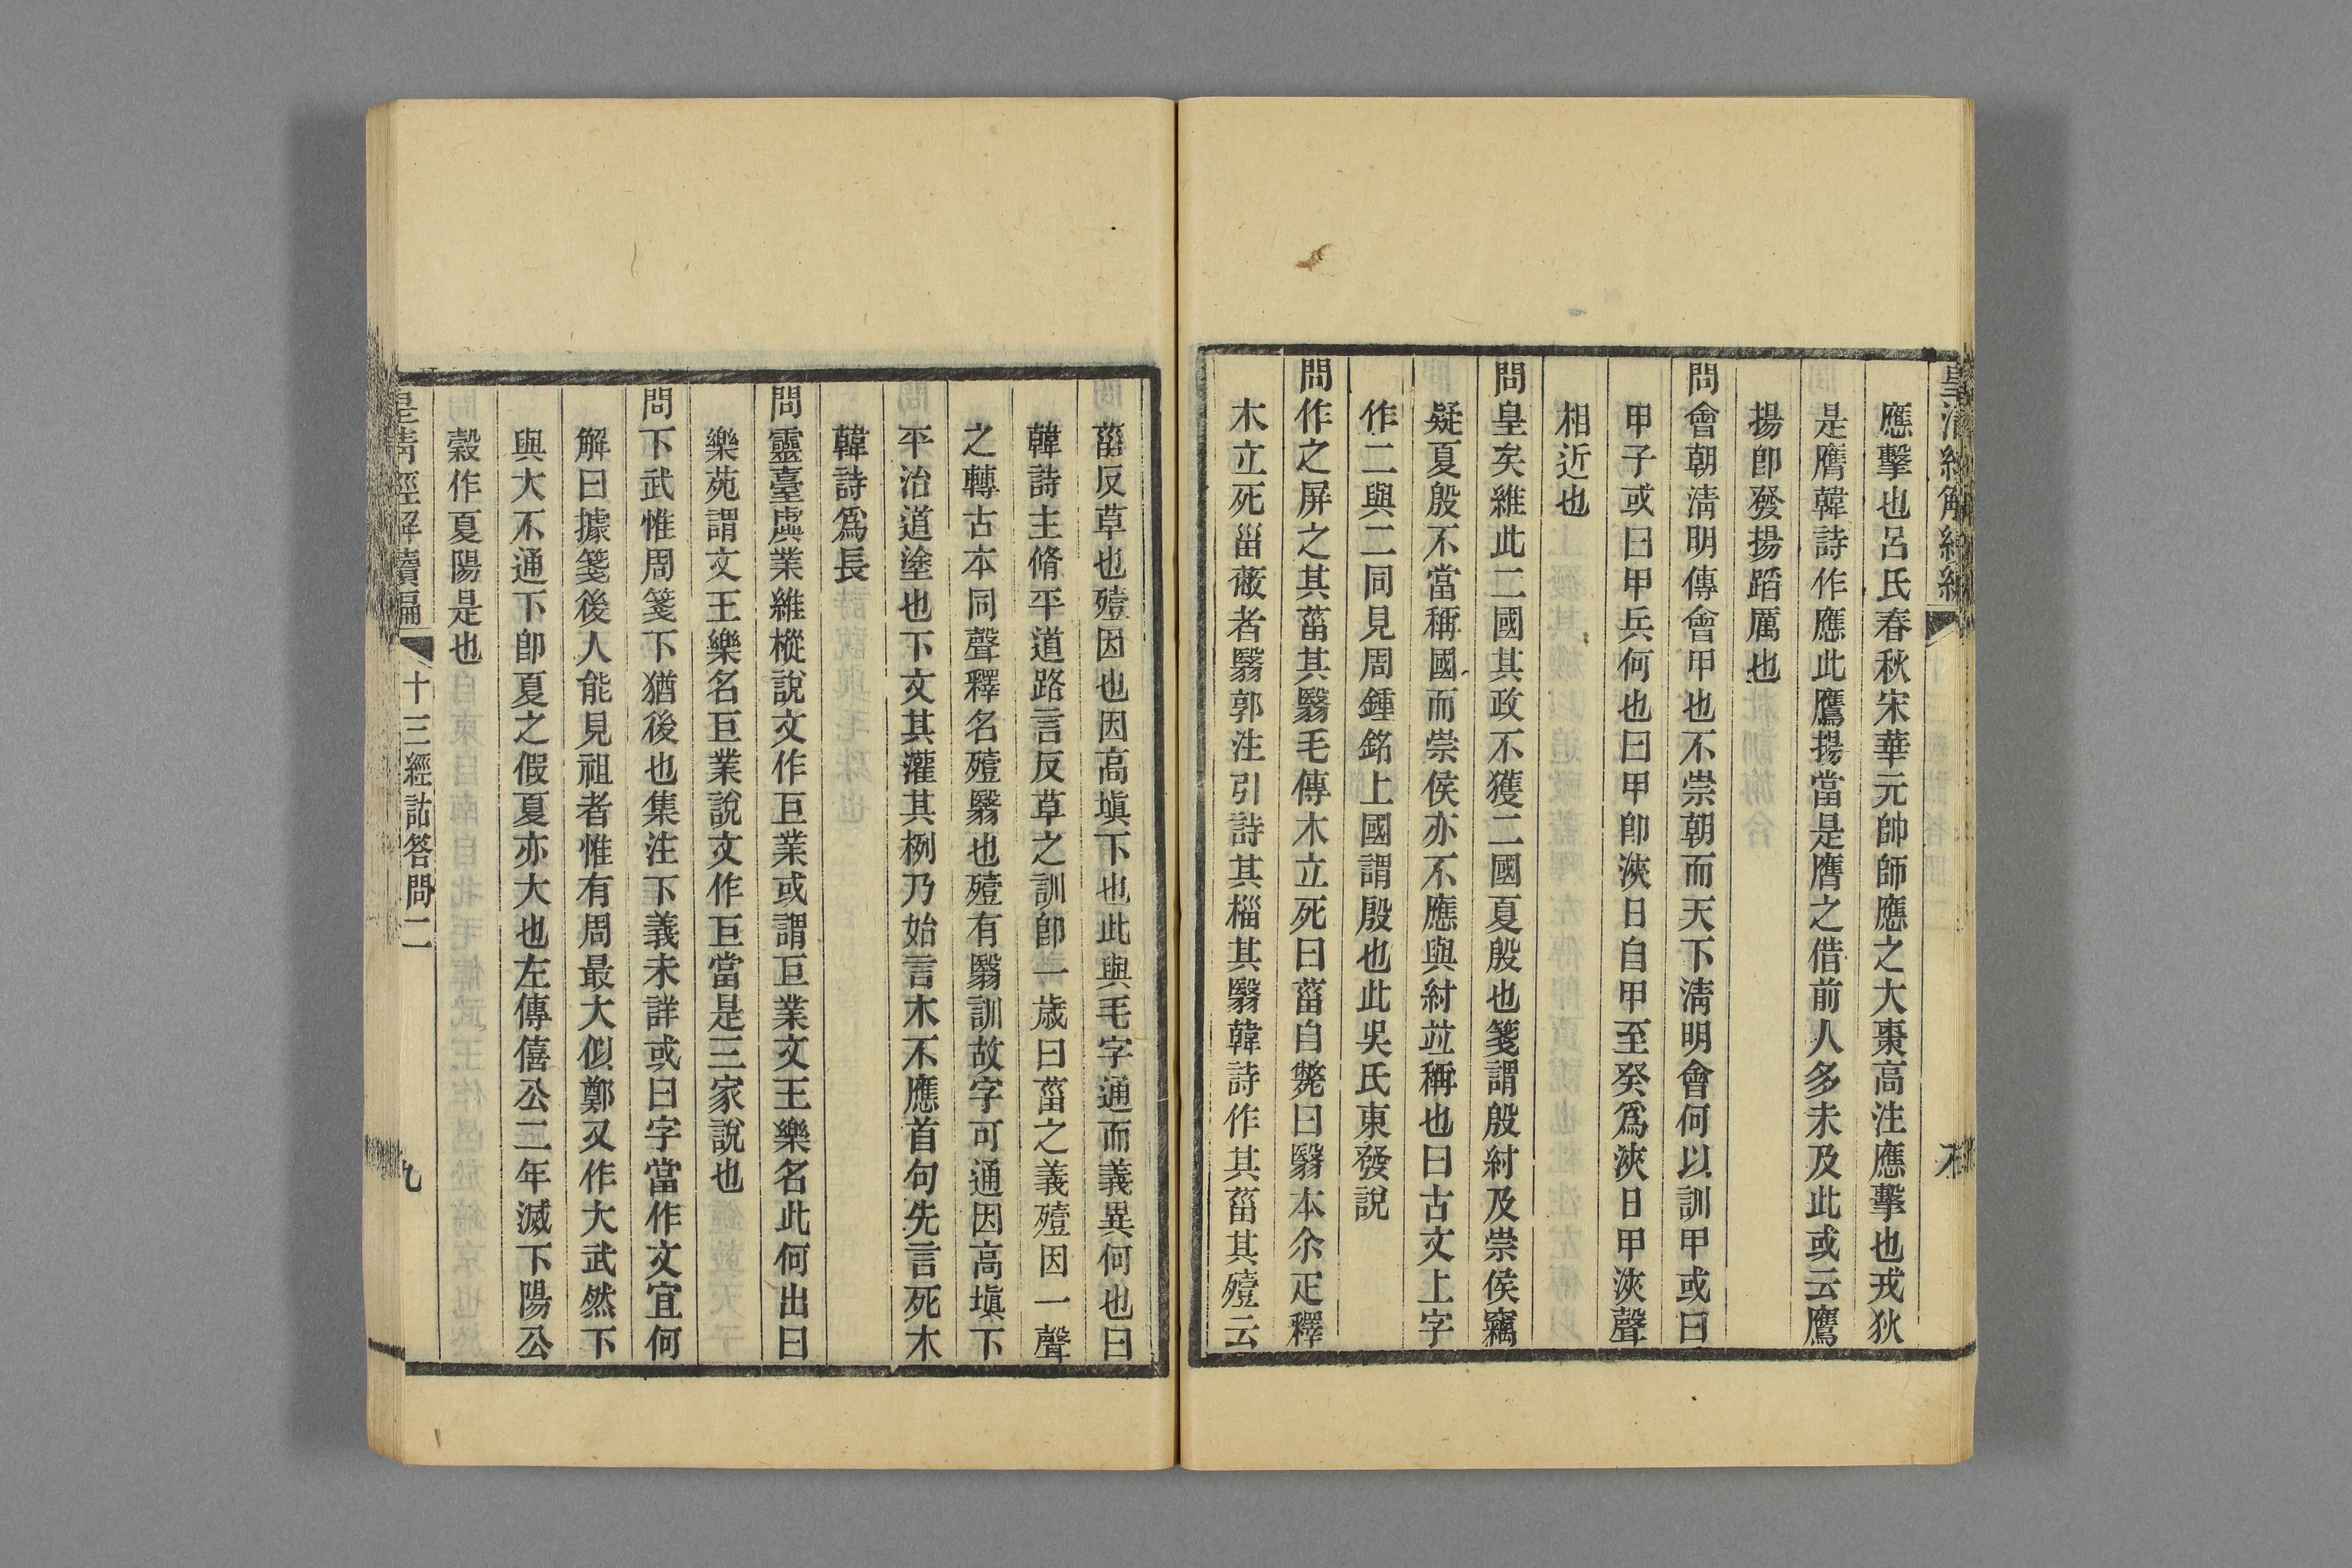 應擊也呂氏春秋宋華元帥師應之大棗高注應擊也戎狄
是膺韓詩作應此鷹揚當是膺之借前人多未及此或云鷹
揚卽發揚蹈厲也
問會朝淸明傳會甲也不崇朝而天下淸明會何以訓甲或曰
甲子或曰甲兵何也曰甲卽浹日自甲至癸爲浹日甲浹聲
相近也
問皇矣維此二國其政不獲二國夏殷也箋謂殷紂及崇侯竊
疑夏殷不當稱國而崇侯亦不應與紂竝稱也曰古文上字
作二與二同見周鍾銘上國謂殷也此吳氏東發說
問作之屏之其菑其翳毛傳木立死曰菑自斃曰翳本尒疋釋
木立死甾蔽者翳郭注引詩其椔其翳韓詩作其菑其殪云
菑反草也殪因也因高塡下也此與毛字通而義異何也曰
韓詩主脩平道路言反草之訓卽一歲曰菑之義殪因一聲
之轉古本同聲釋名殪翳也殪有翳訓故字可通因高塡下
平治道塗也下文其灌其栵乃始言木不應首句先言死木
韓詩爲長
問靈臺虡業維樅說文作巨業或謂巨業文王樂名此何出曰
樂苑謂文王樂名巨業說文作巨當是三家說也
問下武惟周箋下猶後也集注下義未詳或曰字當作文宜何
解曰據箋後人能見祖者惟有周最大似鄭又作大武然下
與大不通下卽夏之假夏亦大也左傳僖公二年滅下陽公
穀作夏陽是也
皇淸經解續編 十三經詁答問二 九